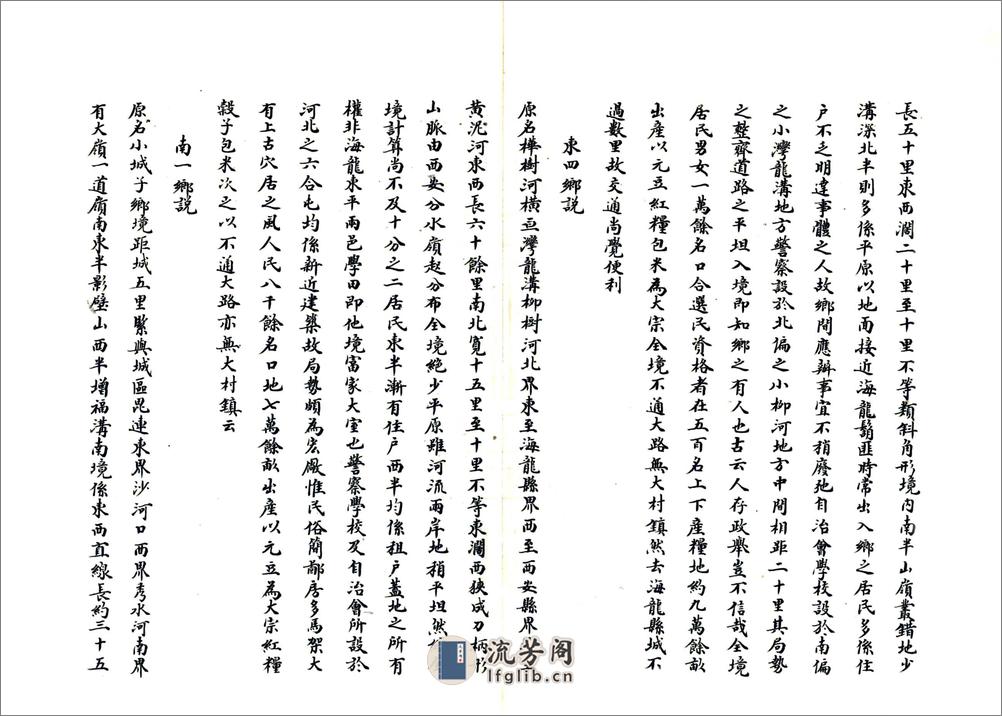 長五十里東西濶二十里至十里不等類斜角形境內南半山嶺叢錯地少
溝深北半則多係平原以地面接近海龍鬍匪時常出入鄉之居民多係住
戶不乏明達事體之人故鄉間應辦事宜不稍廢弛自治會學校設於南偏
之小灣龍溝地方警察設於北偏之小柳河地方中間相距二十里其局勢
之整齊道路之平坦入境即知鄉之有人也古云人存政舉豈不信哉全境
居民男女一萬餘名口合選民資格者在五百名上下產糧地約九萬餘畝
出產以元豆紅糧包米為大宗全境不通大路無大村鎮然去海龍縣城不
過數里故交通尚覺便利
東四鄉說
原名樺樹河橫亘灣龍溝柳樹河北界東至海龍縣界西至西安縣界
黄泥河東西長六十餘里南北寬十五里至十里不等東濶西狹成刀柄形
山脈由西安分水嶺起分布全境絶少平原雖河流兩岸地稍平坦然
境計算尚不及十分之二居民東半漸有住戶西半均係租戶蓋地之所有
權非海龍東平兩邑學田即他境富家大室也警察學校及自治會所設於
河北之六合屯均係新近建築故局勢頗為宏廠惟民俗簡鄙房多馬架大
有上古穴居之風人民八千餘名口地七萬餘畝出產以元豆為大宗紅糧
穀子包米次之以不通大路亦無大村鎮云
南一鄉說
原名小城子鄉境距城五里緊與城區毘連東界沙河口西界秀水河南界
有大嶺一道嶺南東半影壁山西半增福溝南境係東西直線長約三十五
流芳阁
lfglib.cn